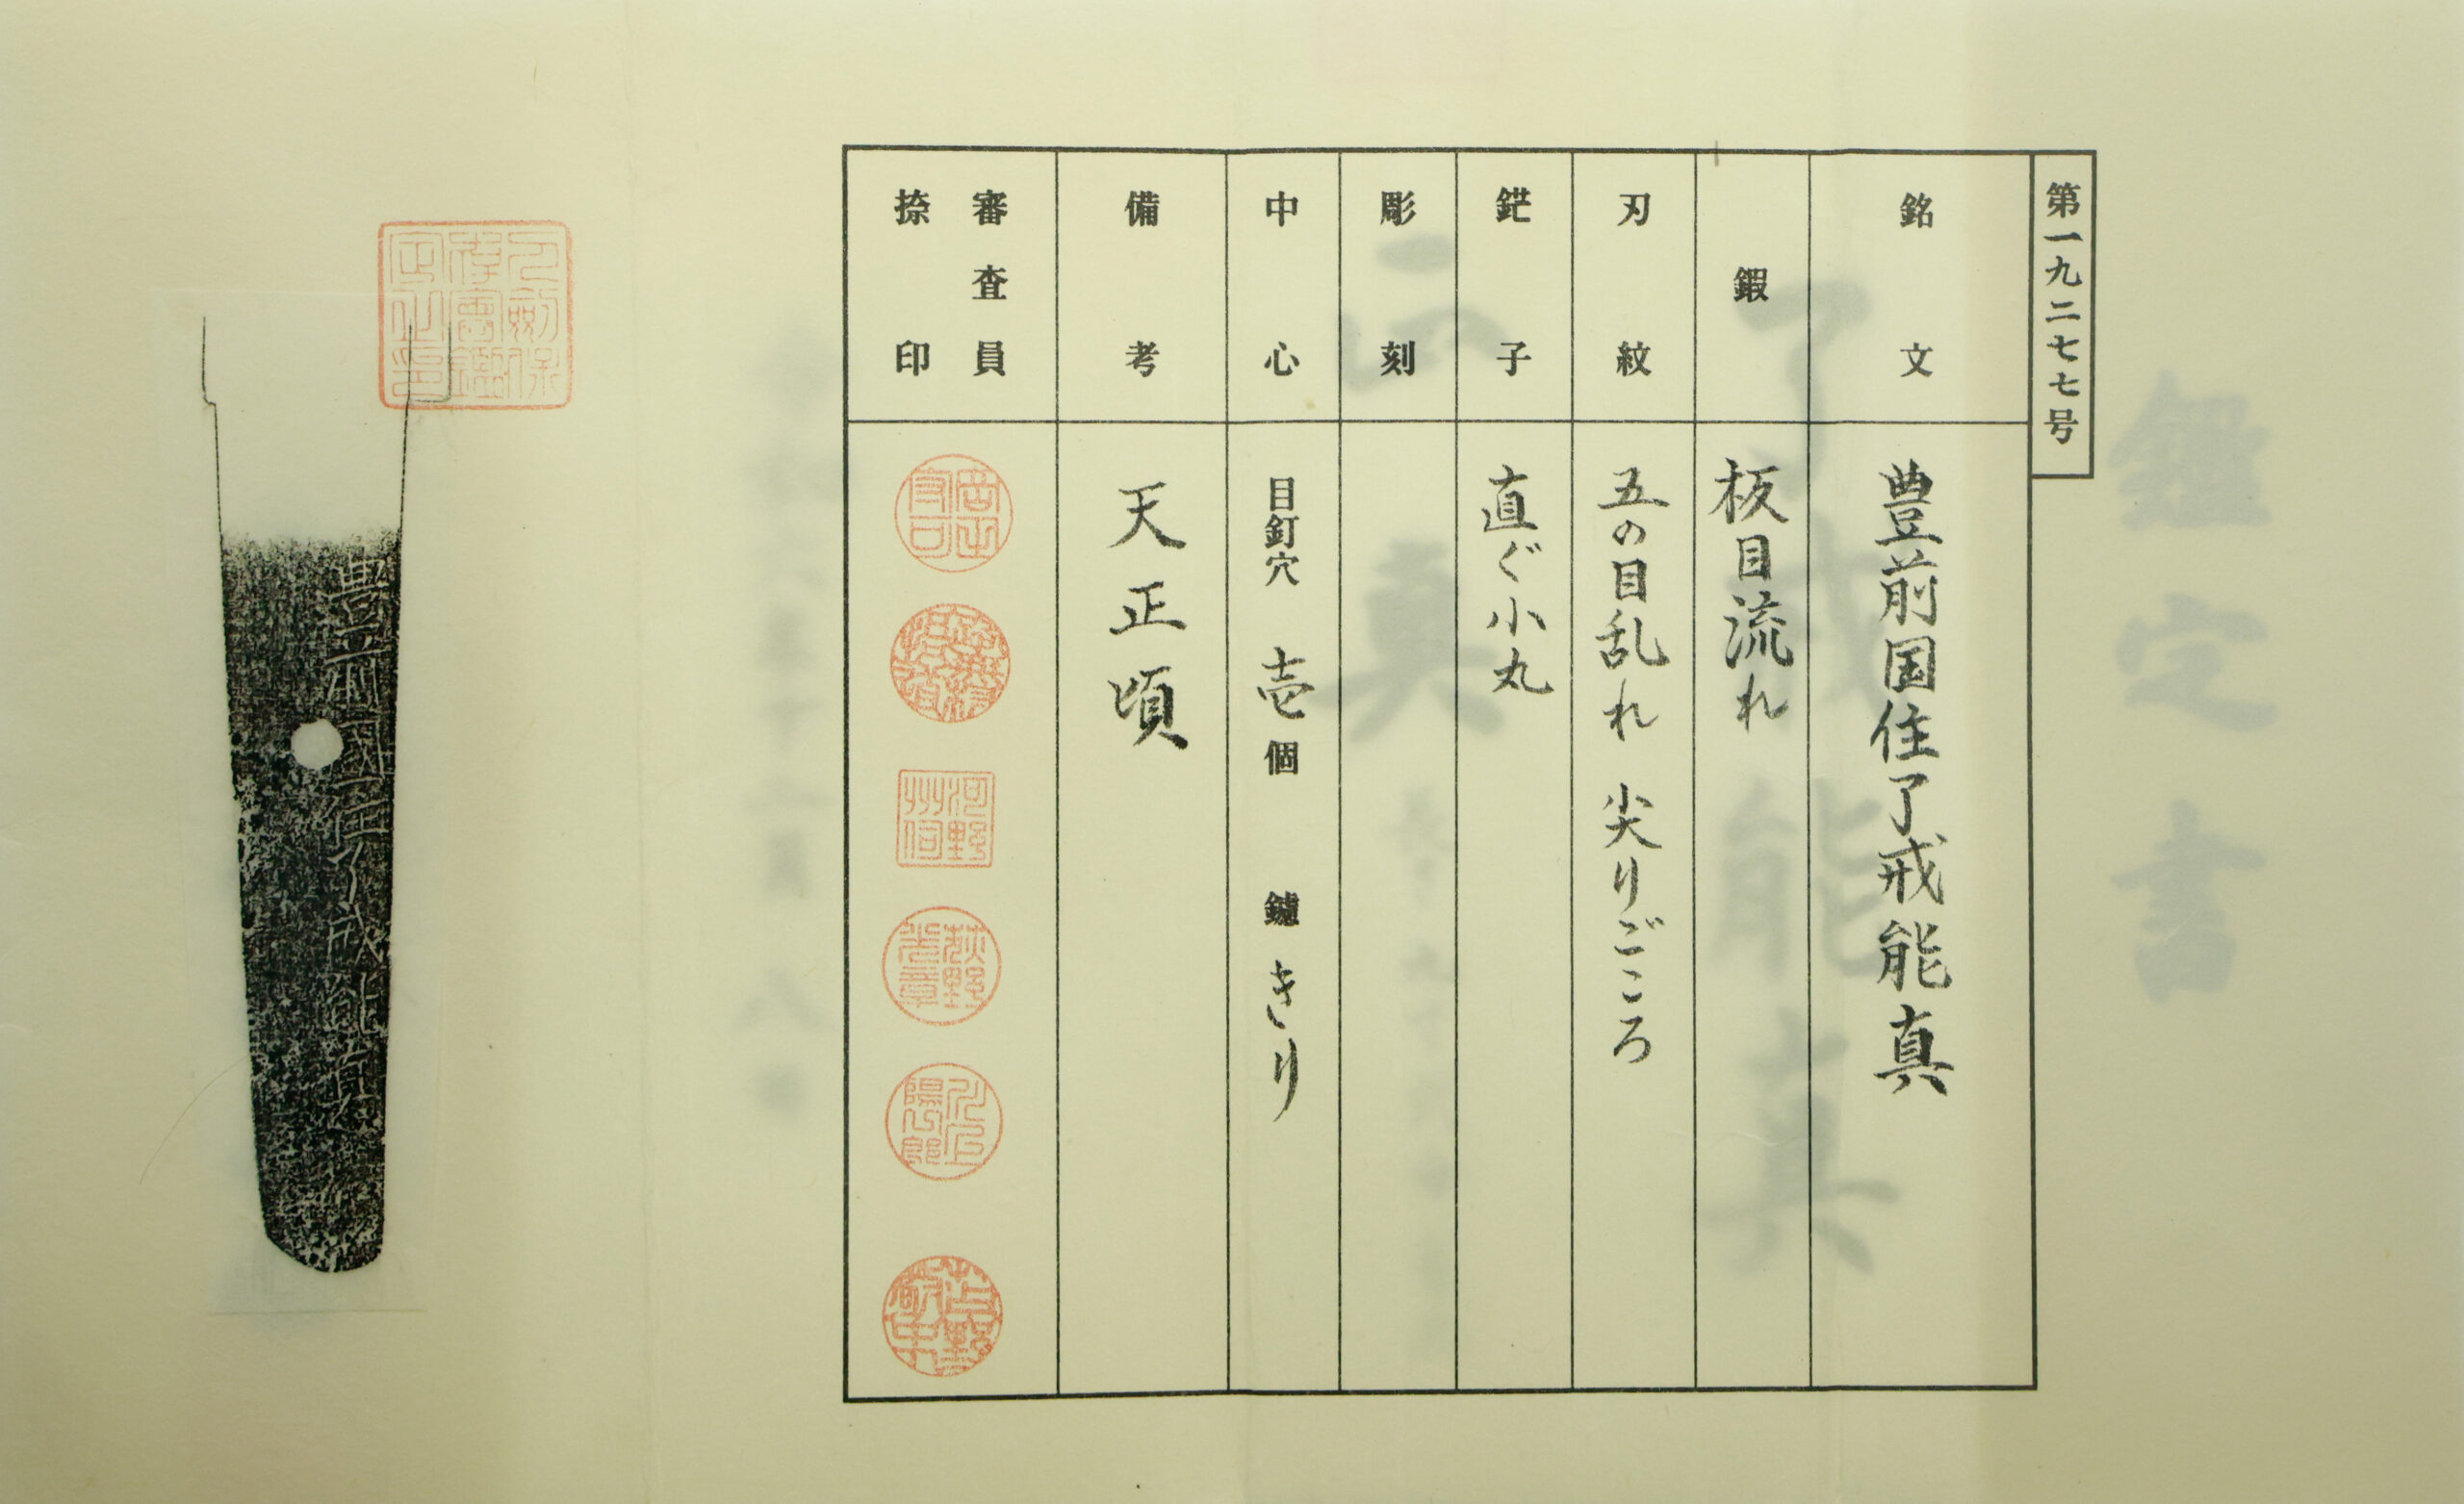 鑑定書
第一九二七七号
銘文 豊前国住了戒能真
鍜 板目流れ
刃紋 五の目乱れ 尖りごころ
鋩子 直ぐ小丸
彫刻
中心 目釘穴 壱個 鑢 きり
備考 天正頃
審査員
捺印
河野
荻野
豊前國住了戒能真